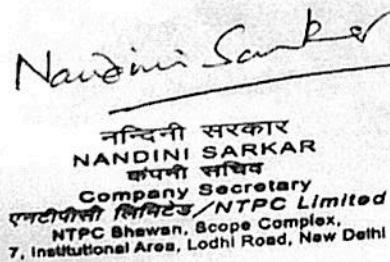 Nandini Sarkar
नन्दिनी सरकार
NANDINI SARKAR
कंपनी सचिव
Company Secretary
एनटीपीसी लिमिटेड/NTPC Limited
NTPC Bhawan, Scope Complex,
7, Institutional Area, Lodhi Road, New Delhi